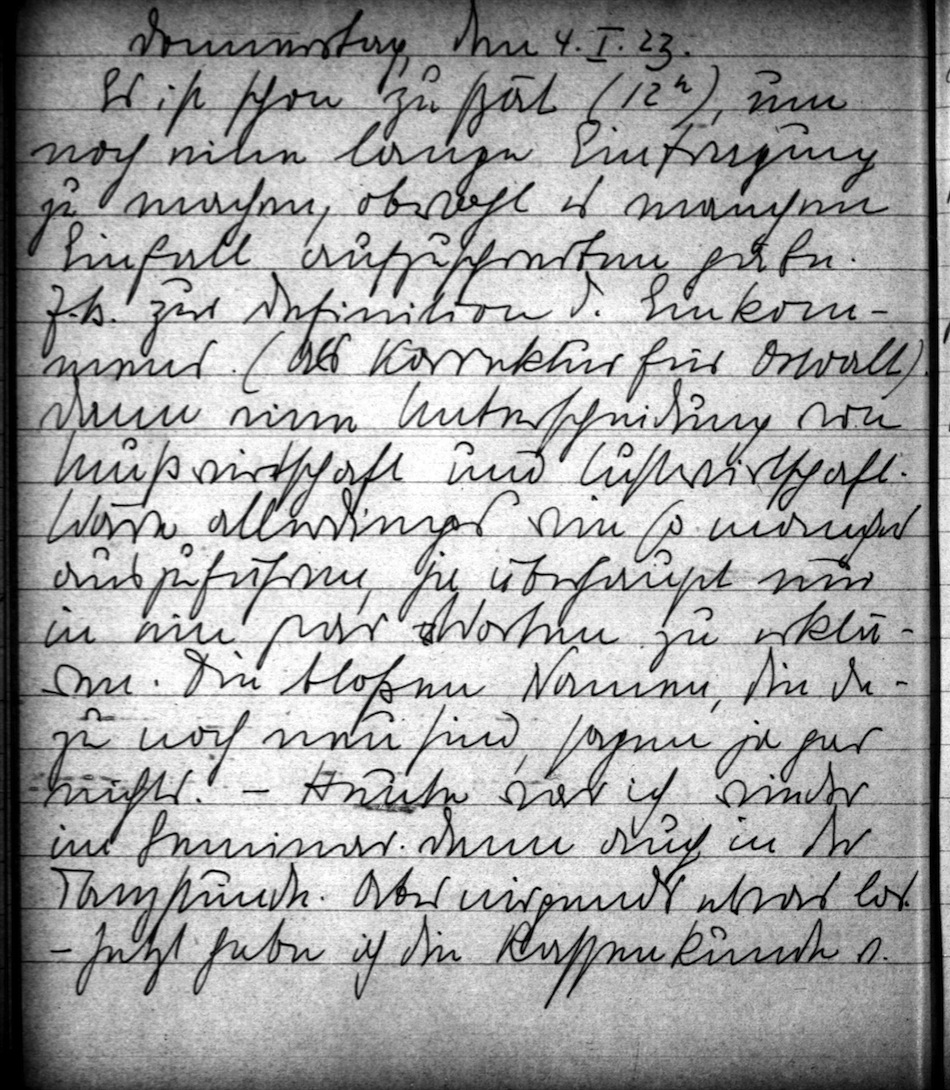 Donnerstag, den 4. I. 23.
Es ist schon zu spät (12ʰ), um
noch eine lange Eintragung
zu machen, obwohl es manchen
Einfall aufzuschreiben gäbe.
Z.B. zur Definition d. Einkom-
mens. (als Korrektur für Oswalt).
Dann eine Unterscheidung von
Mußwirtschaft und Lustwirtschaft.
Wäre allerdings viel zu manches
auszuführen, ja überhaupt nur
in ein paar Worten zu erklä-
ren. Die bloßen Namen, die da-
zu noch neu sind, sagen ja gar
nichts. – Heute war ich wieder
im Seminar. Dann auch in der
Tanzstunde. Aber nirgends etwas los.
– Jetzt habe ich die Rassenkunde v.